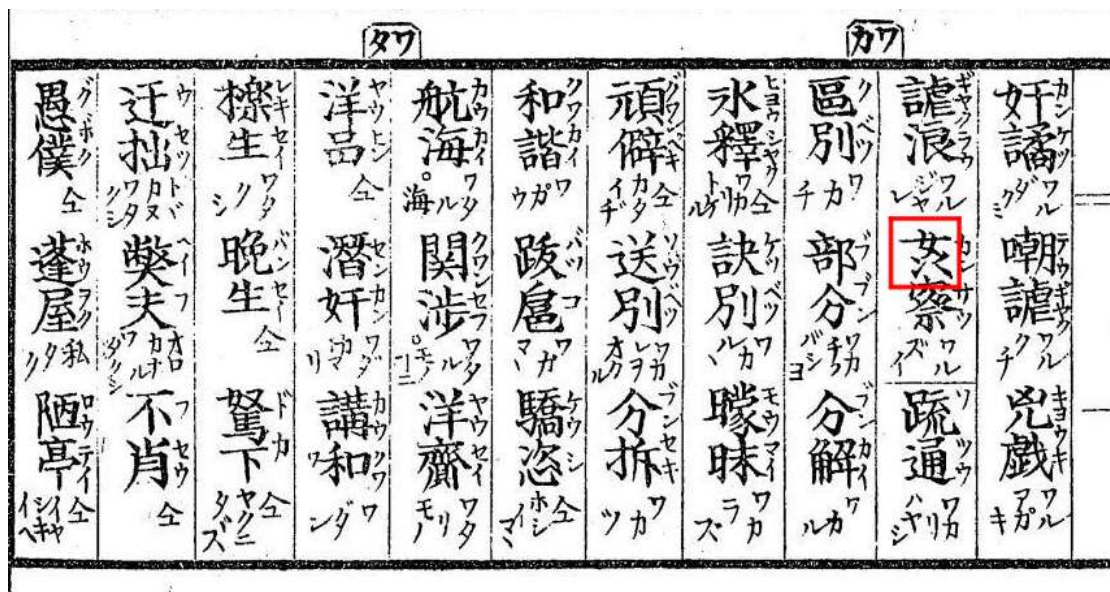 カワ
タワ
奸譎 カンケツ ワルダクミ 嘲謔 テウギヤク ワルクチ 兇戯 キョウキ ワルアガキ
謔浪 ギヤクラウ ワルジヤレ 察 カンサツ ワルズイ 疏通 ソツウ ワカリハヤシ
區別 クベツ ワカチ 部分 ブブン 分解 ブンカイ ワカル
氷釋 ヒョウシヤク 仝ワカリトケル 訣別 ケツベツ ワカルヽ 曚昧 モウマイ ワカラズ
頑僻 グワンヘキ 仝カタイヂ 送別 ソウベツ ワカレヲオクル 分拆 ブンセキ ワカツ
和諧 クワカイ ワガウ 跋扈 バツコ ワガマヽ 驕恣 ケウシ 仝ホシイマヽ
航海 カウカイ ワタル海 関渉 クワンセフ ワタル 洋齎 ヤウセイ ワタリモノ
洋品 ヤウヒン 仝 潛奸 センカン ワダカマリ 講和 カウクワ ワダン
擽生 レキセイ ワタクシ 晩生 バンセー 仝 駑下 ドカ 仝ヤクニタヽズ
迂拙 ウセツ ワタクシ 弊夫 ヘイフ オロカナルワタクシ 不肖 フセウ 仝
愚僕 グボク 仝 蓬屋 ホウヲク 私タク 陋亭 ロウテイ 仝